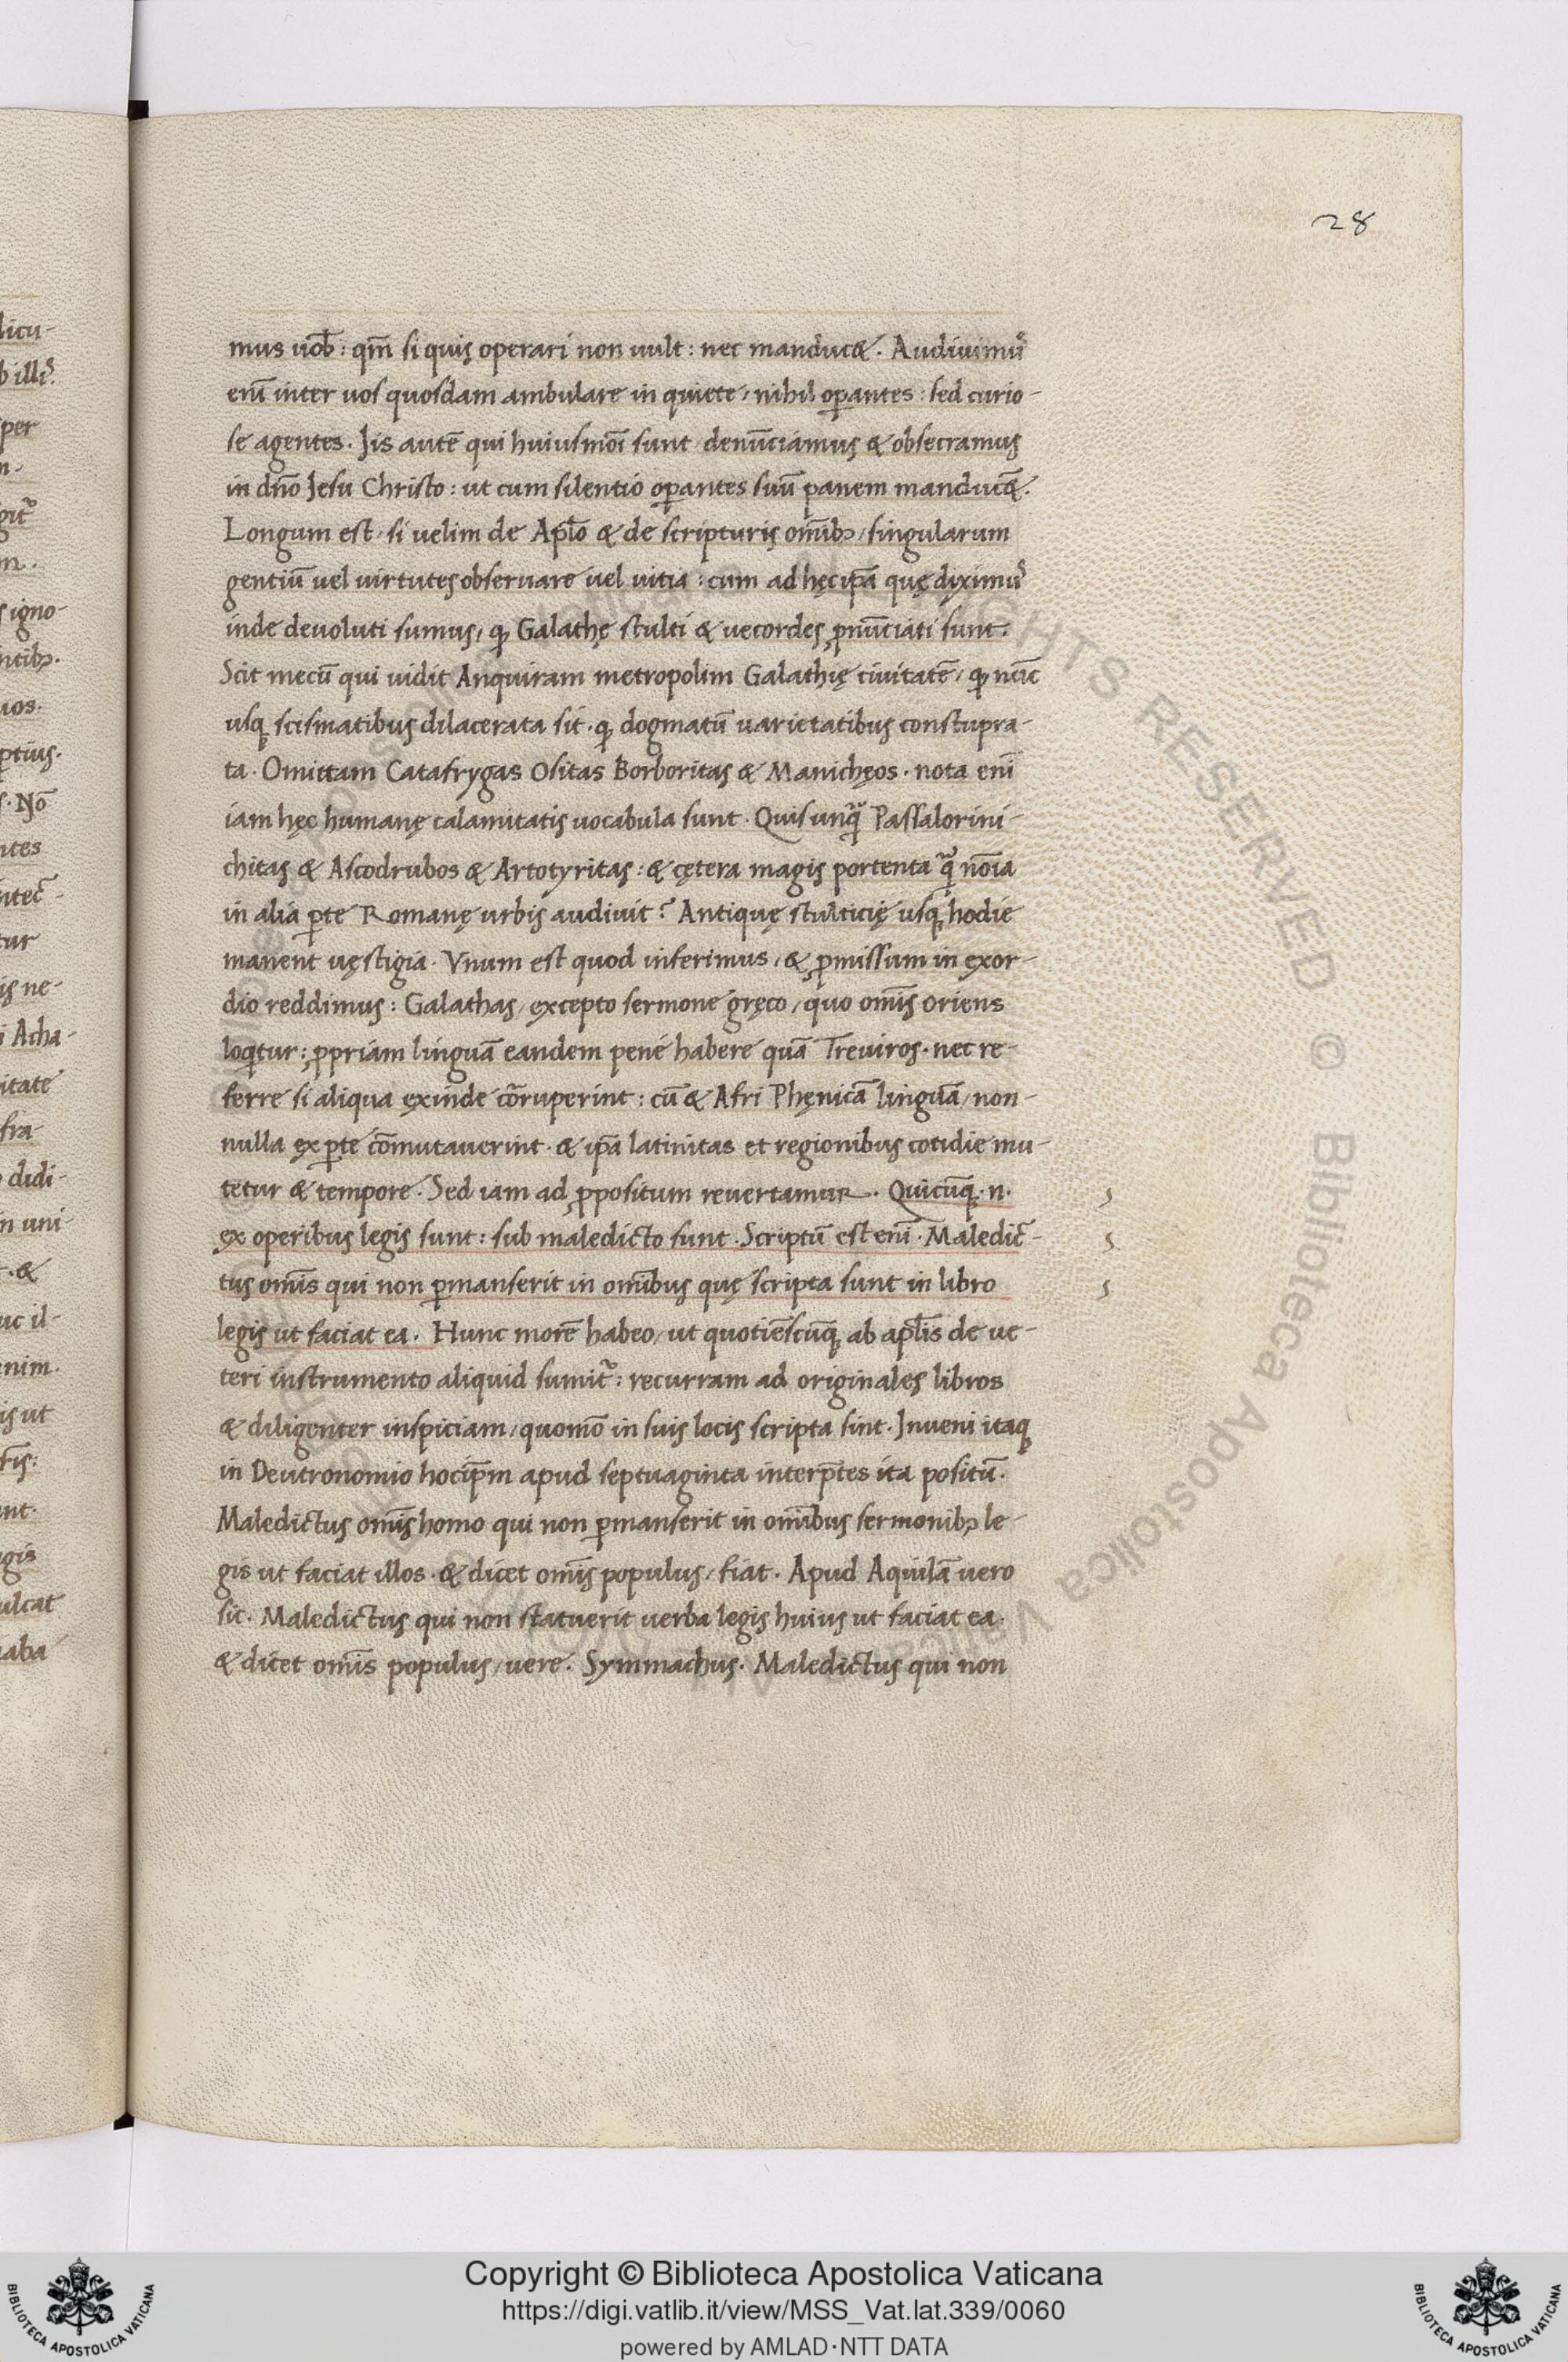 28
mus uob̄: qm̄ si quis operari non uult: nec manducet. Audiuimꝰ
eni᷄ inter uos quosdam ambulare in quiete, nihil oꝑantes: sed curio-
se agentes. Iis autē qui huiusmōi sunt denūciamus & obsecramus
in dn̄o Jesu Christo: ut cum silentio oꝑantes suū panem manducēt.
Longum est, si uelim de Apl̄o & de scripturis omībꝫ, singularum
gentiū uel uirtutes obseruare uel uitia: cum ad hęc ip̄a quę diximꝰ
inde deuoluti sumus, qꝫ Galathę stulti & uecordes ꝓnūciati sunt.
Scit mecū qui uidit Anquiram metropolim Galathię ciuitatē, qꝫ nūc
usqꝫ scismatibus dilacerata sit. qꝫ dogmatū uarietatibus constupra-
ta. Omittam Catafrygas Ofitas Borboritas & Manichęos. nota enī
iam hęc humanę calamitatis uocabula sunt. Quis unq̄ Passalorini-
chitas & Ascodrubos & Artotyritas: & cętera magis portenta q̄ nōia
in alia ꝑte Romanę urbis audiuit? Antiquę stulticię usqꝫ hodie
manent uęstigia. Vnum est quod inferimus, & ꝓmissum in exor-
dio reddimus: Galathas, excepto sermone gręco, quo omīs oriens
loqͥtur; ꝓpriam linguā eandem pene habere quā Treuiros. nec re-
ferre si aliqua exinde cōruperint: cū & Afri Phęnicā linguā, non-
nulla ex ꝑte cōmutauerint. & ip̄a latinitas et regionibus cotidie mu-
tetur & tempore. Sed iam ad ꝓpositum reuertamur. Quicūqꝫ .n.
ex operibus legis sunt: sub maledicto sunt. Scriptū est enī. Maledic-
tus omīs qui non ꝑmanserit in omībus quę scripta sunt in libro
legis ut faciat ea. Hunc morē habeo, ut quotiēscūqꝫ ab apl̄is de ue-
teri instrumento aliquid sumit᷑: recurram ad originales libros
& diligenter inspiciam, quomō in suis locis scripta sint. Inueni itaqꝫ
in Deutronomio hoc ip̄m apud septuaginta interp̄tes ita positū.
Maledictus omīs homo qui non ꝑmanserit in omībus sermonibꝫ le-
gis ut faciat illos. & dicet omīs populus, fiat. Apud Aquilā uero
sic. Maledictus qui non statuerit uerba legis huius ut faciat ea.
& dicet omīs populus, uere. Symmachus. Maledictus qui non
Copyright © Biblioteca Apostolica Vaticana
https://digi.vatlib.it/view/MSS_Vat.lat.339/0060
powered by AMLAD·NTT DATA